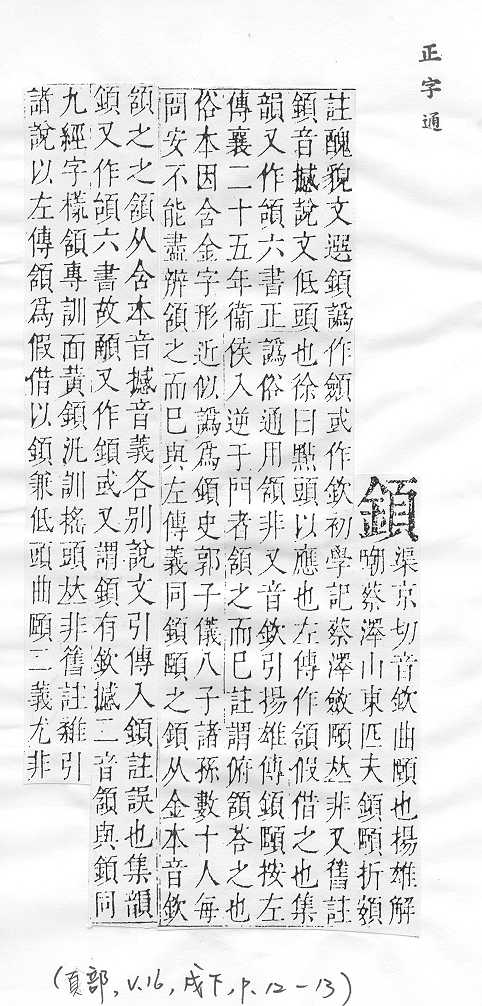 正字通
顉
渠京切音欽曲頤也揚雄解
嘲蔡澤山東匹夫顉頤折頞
註醜貌文選顉譌作顩或作欽初學記蔡澤斂頤𠀤非又舊註
顉音撼說文低頭也徐曰點頭以應也左傳作頷假借之也集
韻又作頜六書正譌俗通用頷非又音欽引揚雄傳顉頤按左
傳襄二十五年衞侯入逆于門者頷之而已註謂俯頷荅之也
俗本因含金字形近似譌爲顉史郭子儀八子諸孫數十人每
問安不能盡辨頷之而已與左傳義同顉頤之顉从金本音欽
頷之之頷从含本音撼音義各別說文引傳入顉註誤也集韻
顉又作頜六書故顲又作顉或又謂顉有欽撼二音頷與顉同
九經字樣頷專訓面黃顉汎訓搖頭𠀤非舊註雜引
諸說以左傳頷爲假借以顉兼低頭曲頤二義尤非
(頁部, v.16, 戌下, p. 12-13)